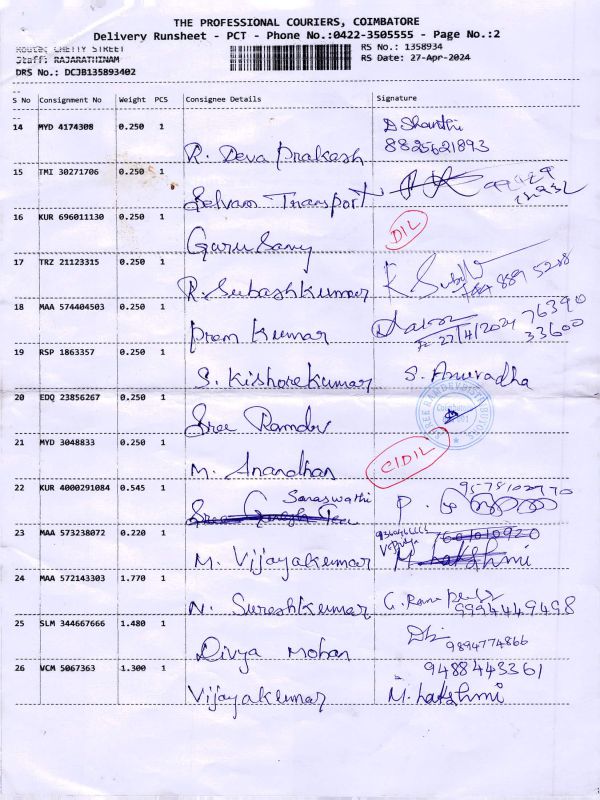 THE PROFESSIONAL COURIERS, COIMBATORE
Delivery Runsheet - PCT - Phone No.:0422-3505555 - Page No.:2
Route: CHETTY STREET
Staff: RAJARATHINAM
DRS No.: DCJB135893402
RS No.: 1358934
RS Date: 27-Apr-2024
S No Consignment No Weight PCS Consignee Details Signature
14 MYD 4174308 0.250 1 R. Deva Prakash D Shanthi
8825621893
15 TMI 30271706 0.250 1 Selvam Transport
16 KUR 696011130 0.250 1 Guru Samy DIL
17 TRZ 21123315 0.250 1 R. Subash Kumar
18 MAA 574404503 0.250 1 Prem Kumar 76390
27/4/2024 33600
19 RSP 1863357 0.250 1 S. Kishore kumar S. Anuradha
20 EDQ 23856267 0.250 1 Sree Ramdev
21 MYD 3048833 0.250 1 M. Anandhan C/DIL
22 KUR 4000291084 0.545 1 Saraswathi
23 MAA 573238072 0.220 1 M. Vijayakumar M. Lakshmi
24 MAA 572143303 1.770 1 N. Suresh Kumar 9994449498
25 SLM 344667666 1.480 1 Divya Mohan 9894774866
26 VCM 5067363 1.300 1 Vijayakumar 9488443361
M. Lakshmi